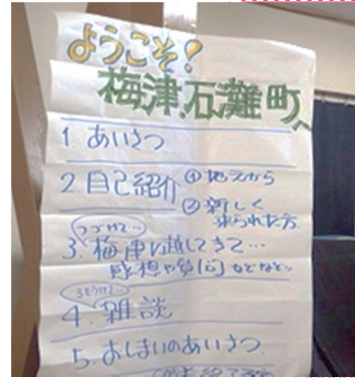 ようこそ!
梅津.石灘町へ
1 あいさつ
2 自己紹介 ① 地元から
② 新しく
来られた方
つづけて…
3. 梅津に越してきて…
感想や質問などなど
4. 雑談
5. おしまいのあいさつ